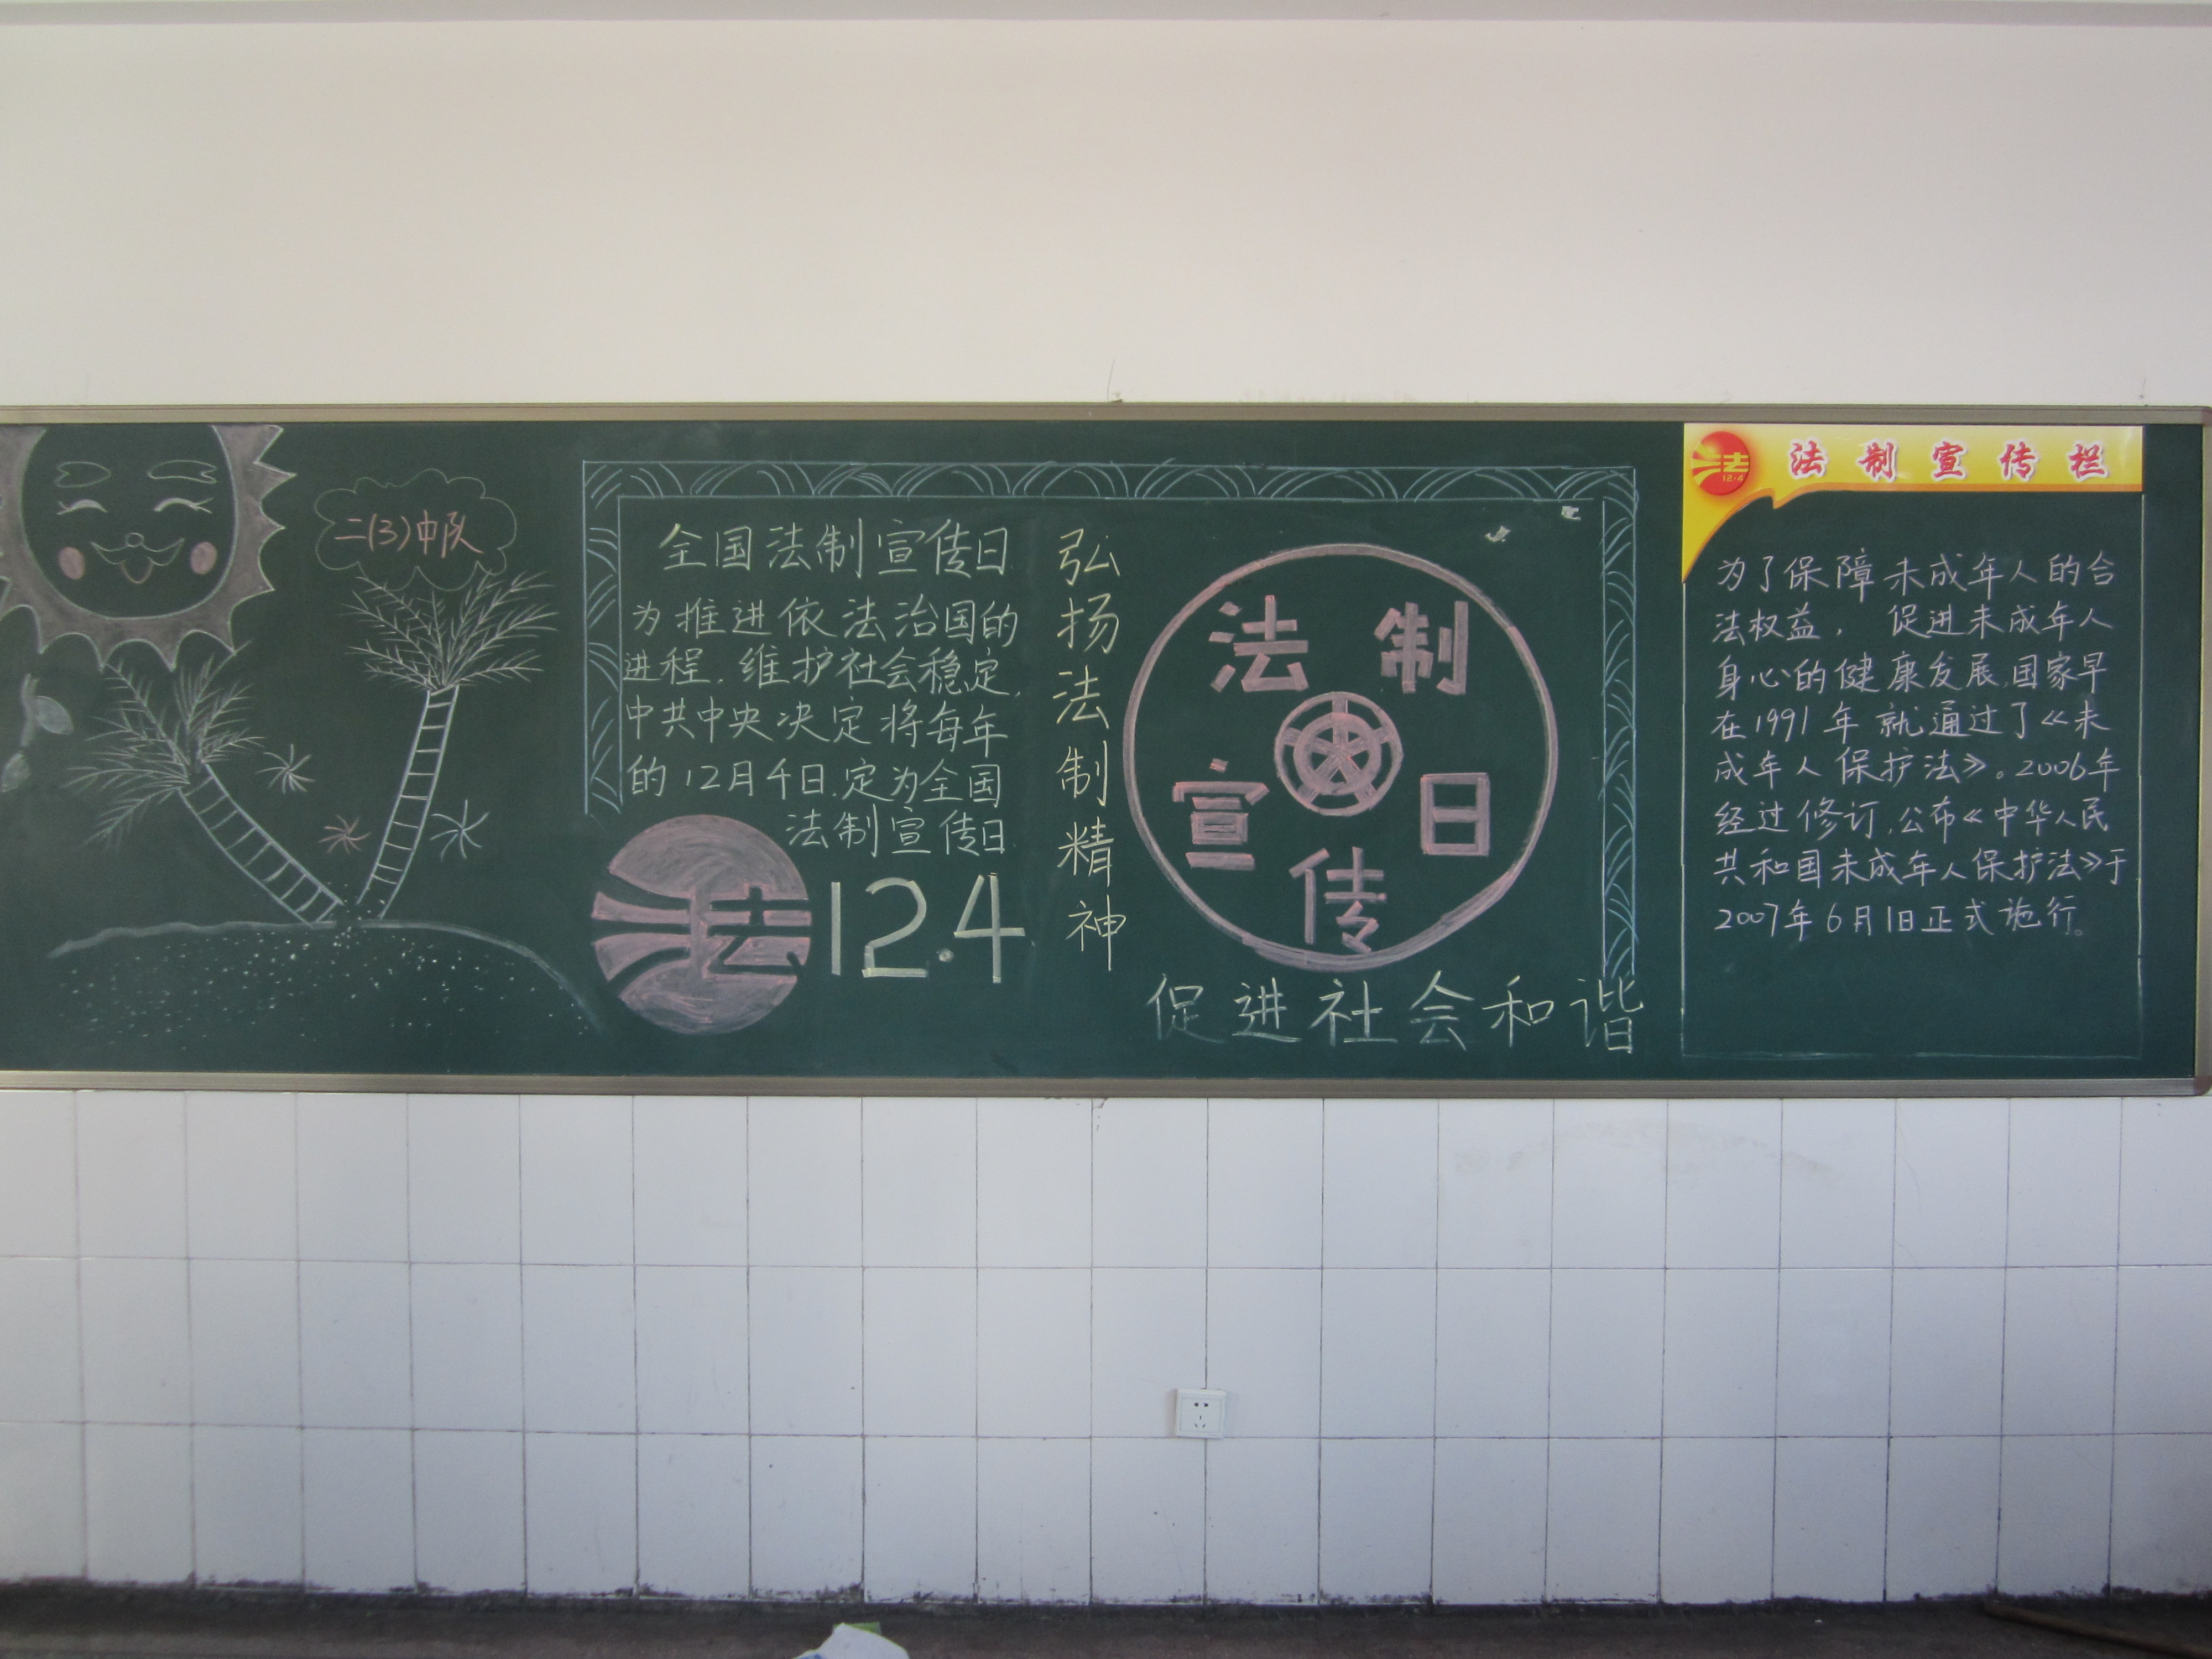 二(3)中队
全国法制宣传日
为推进依法治国的
进程,维护社会稳定,
中共中央决定将每年
的12月4日,定为全国
法制宣传日
法
12.4
弘扬法制精神
法制
宣日
传
促进社会和谐
法制宣传栏
法
12·4
为了保障未成年人的合
法权益,促进未成年人
身心的健康发展,国家早
在1991年就通过了《未
成年人保护法》。2006年
经过修订,公布《中华人民
共和国未成年人保护法》于
2007年6月1日正式施行。